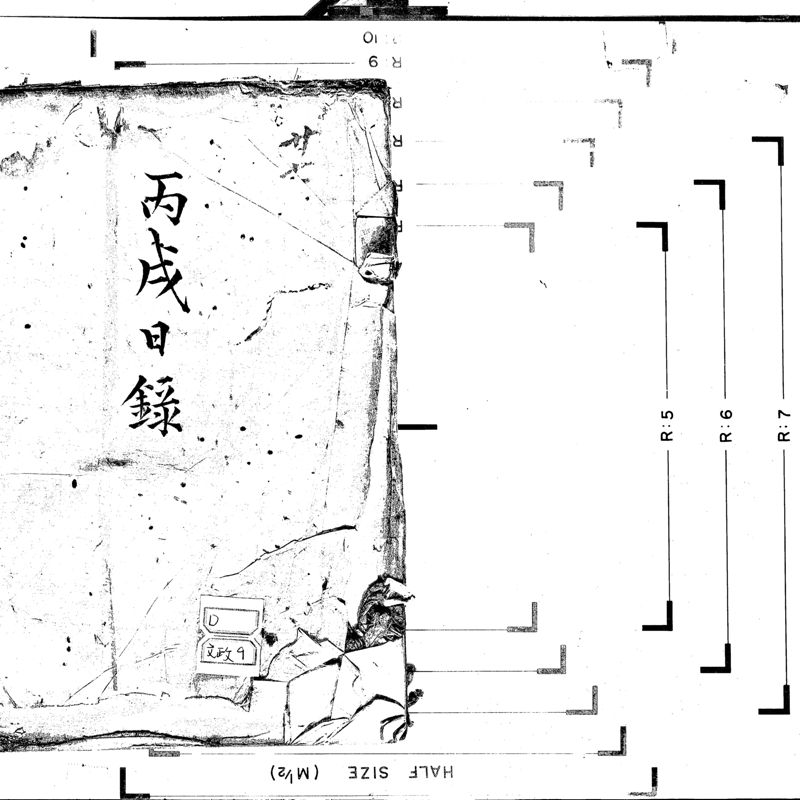 丙戌日録
廿七
D
文政9
R:5
R:6
R:7
R:9
R:10
HALF SIZE (M½)